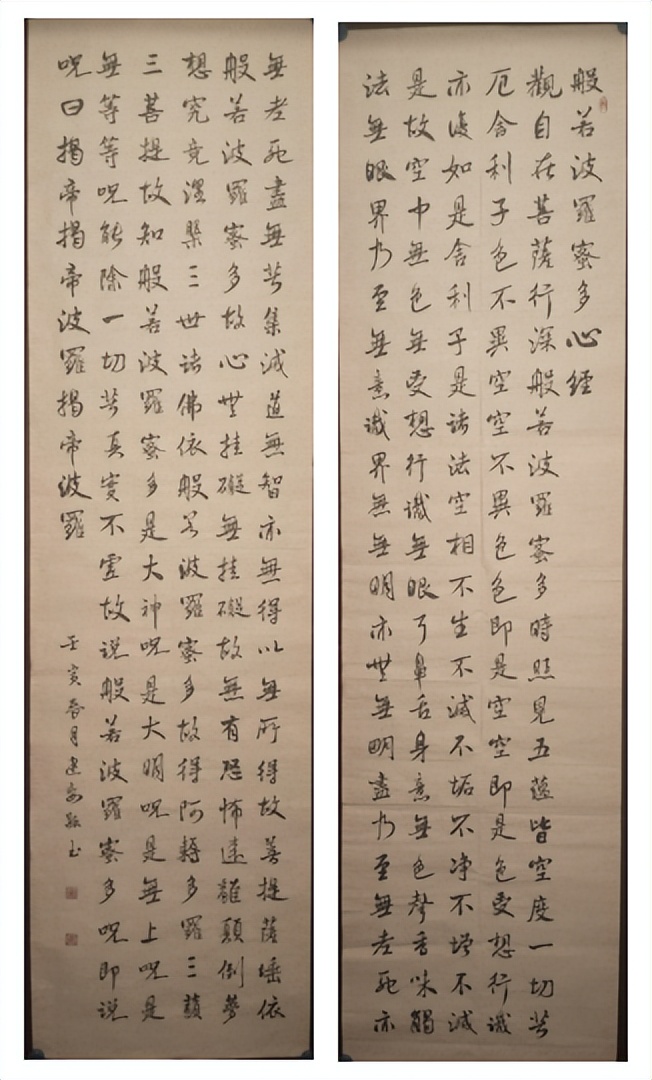 般若波羅蜜多心經
觀自在菩薩行深般若波羅蜜多時照見五蘊皆空度一切苦
厄舍利子色不異空空不異色色即是空空即是色受想行識
亦復如是舍利子是諸法空相不生不滅不垢不净不增不減
是故空中無色無受想行識無眼耳鼻舌身意無色聲香味觸
法無眼界乃至無意識界無無明亦無無明盡乃至無老死亦
無老死盡無苦集滅道無智亦無得以無所得故菩提薩埵依
般若波羅蜜多故心無挂礙無挂礙故無有恐怖遠離顛倒夢
想究竟涅槃三世諸佛依般若波羅蜜多故得阿耨多羅三藐
三菩提故知般若波羅蜜多是大神呪是大明呪是無上呪是
無等等呪能除一切苦真實不虛故說般若波羅蜜多呪即說
呪曰揭帝揭帝波羅揭帝波羅
壬寅春月建书